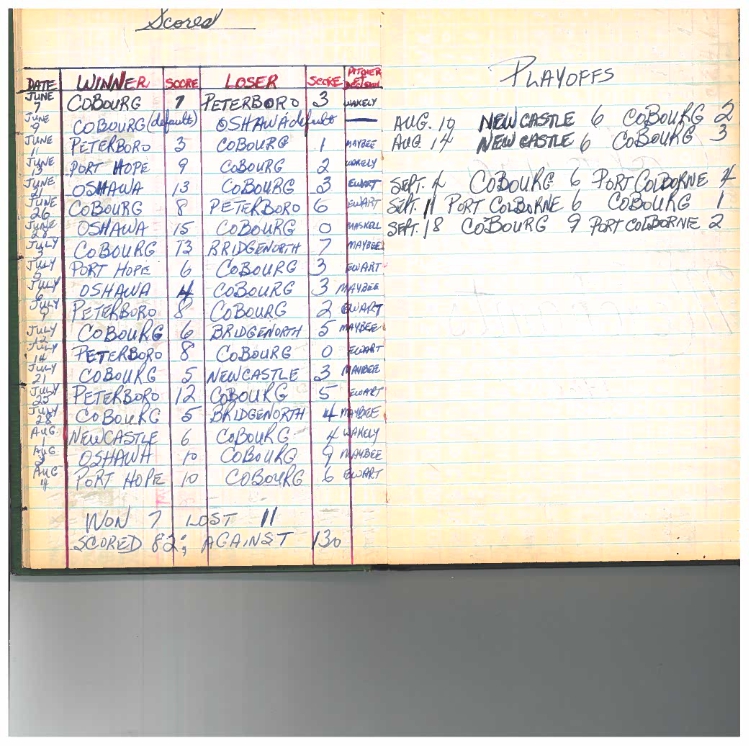 Scored
DATE WINNER SCORE LOSER SCORE PITCHER
JUNE 7 COBOURG 7 PETERBORO 3 WAKELY
JUNE 9 COBOURG (default) OSHAWA default —
JUNE 11 PETERBORO 3 COBOURG 1 MAYBEE
JUNE 13 PORT HOPE 9 COBOURG 2 WAKELY
JUNE 21 OSHAWA 13 COBOURG 3 EWART
JUNE 26 COBOURG 8 PETERBORO 6 EWART
JUNE 28 OSHAWA 15 COBOURG 0 MASKELL
JULY 3 COBOURG 13 BRIDGENORTH 7 MAYBEE
JULY 5 PORT HOPE 6 COBOURG 3 EWART
JULY OSHAWA 4 COBOURG 3 MAYBEE
JULY 9 PETERBORO 8 COBOURG 2 EWART
JULY 12 COBOURG 6 BRIDGENORTH 5 MAYBEE
JULY 14 PETERBORO 8 COBOURG 0 EWART
JULY 21 COBOURG 5 NEWCASTLE 3 MAYBEE
JULY 25 PETERBORO 12 COBOURG 5 EWART
JULY 28 COBOURG 5 BRIDGENORTH 4 MAYBEE
AUG 1 NEWCASTLE 6 COBOURG 4 WAKELY
AUG OSHAWA 10 COBOURG 9 MAYBEE
AUG 4 PORT HOPE 10 COBOURG 6 EWART
WON 7 LOST 11
SCORED 82; AGAINST 130
PLAYOFFS
AUG. 10 NEWCASTLE 6 COBOURG 2
AUG 14 NEWCASTLE 6 COBOURG 3
SEPT. 4 COBOURG 6 PORT COLBORNE 4
SEPT. 11 PORT COLBORNE 6 COBOURG 1
SEPT. 18 COBOURG 9 PORT COLBORNE 2